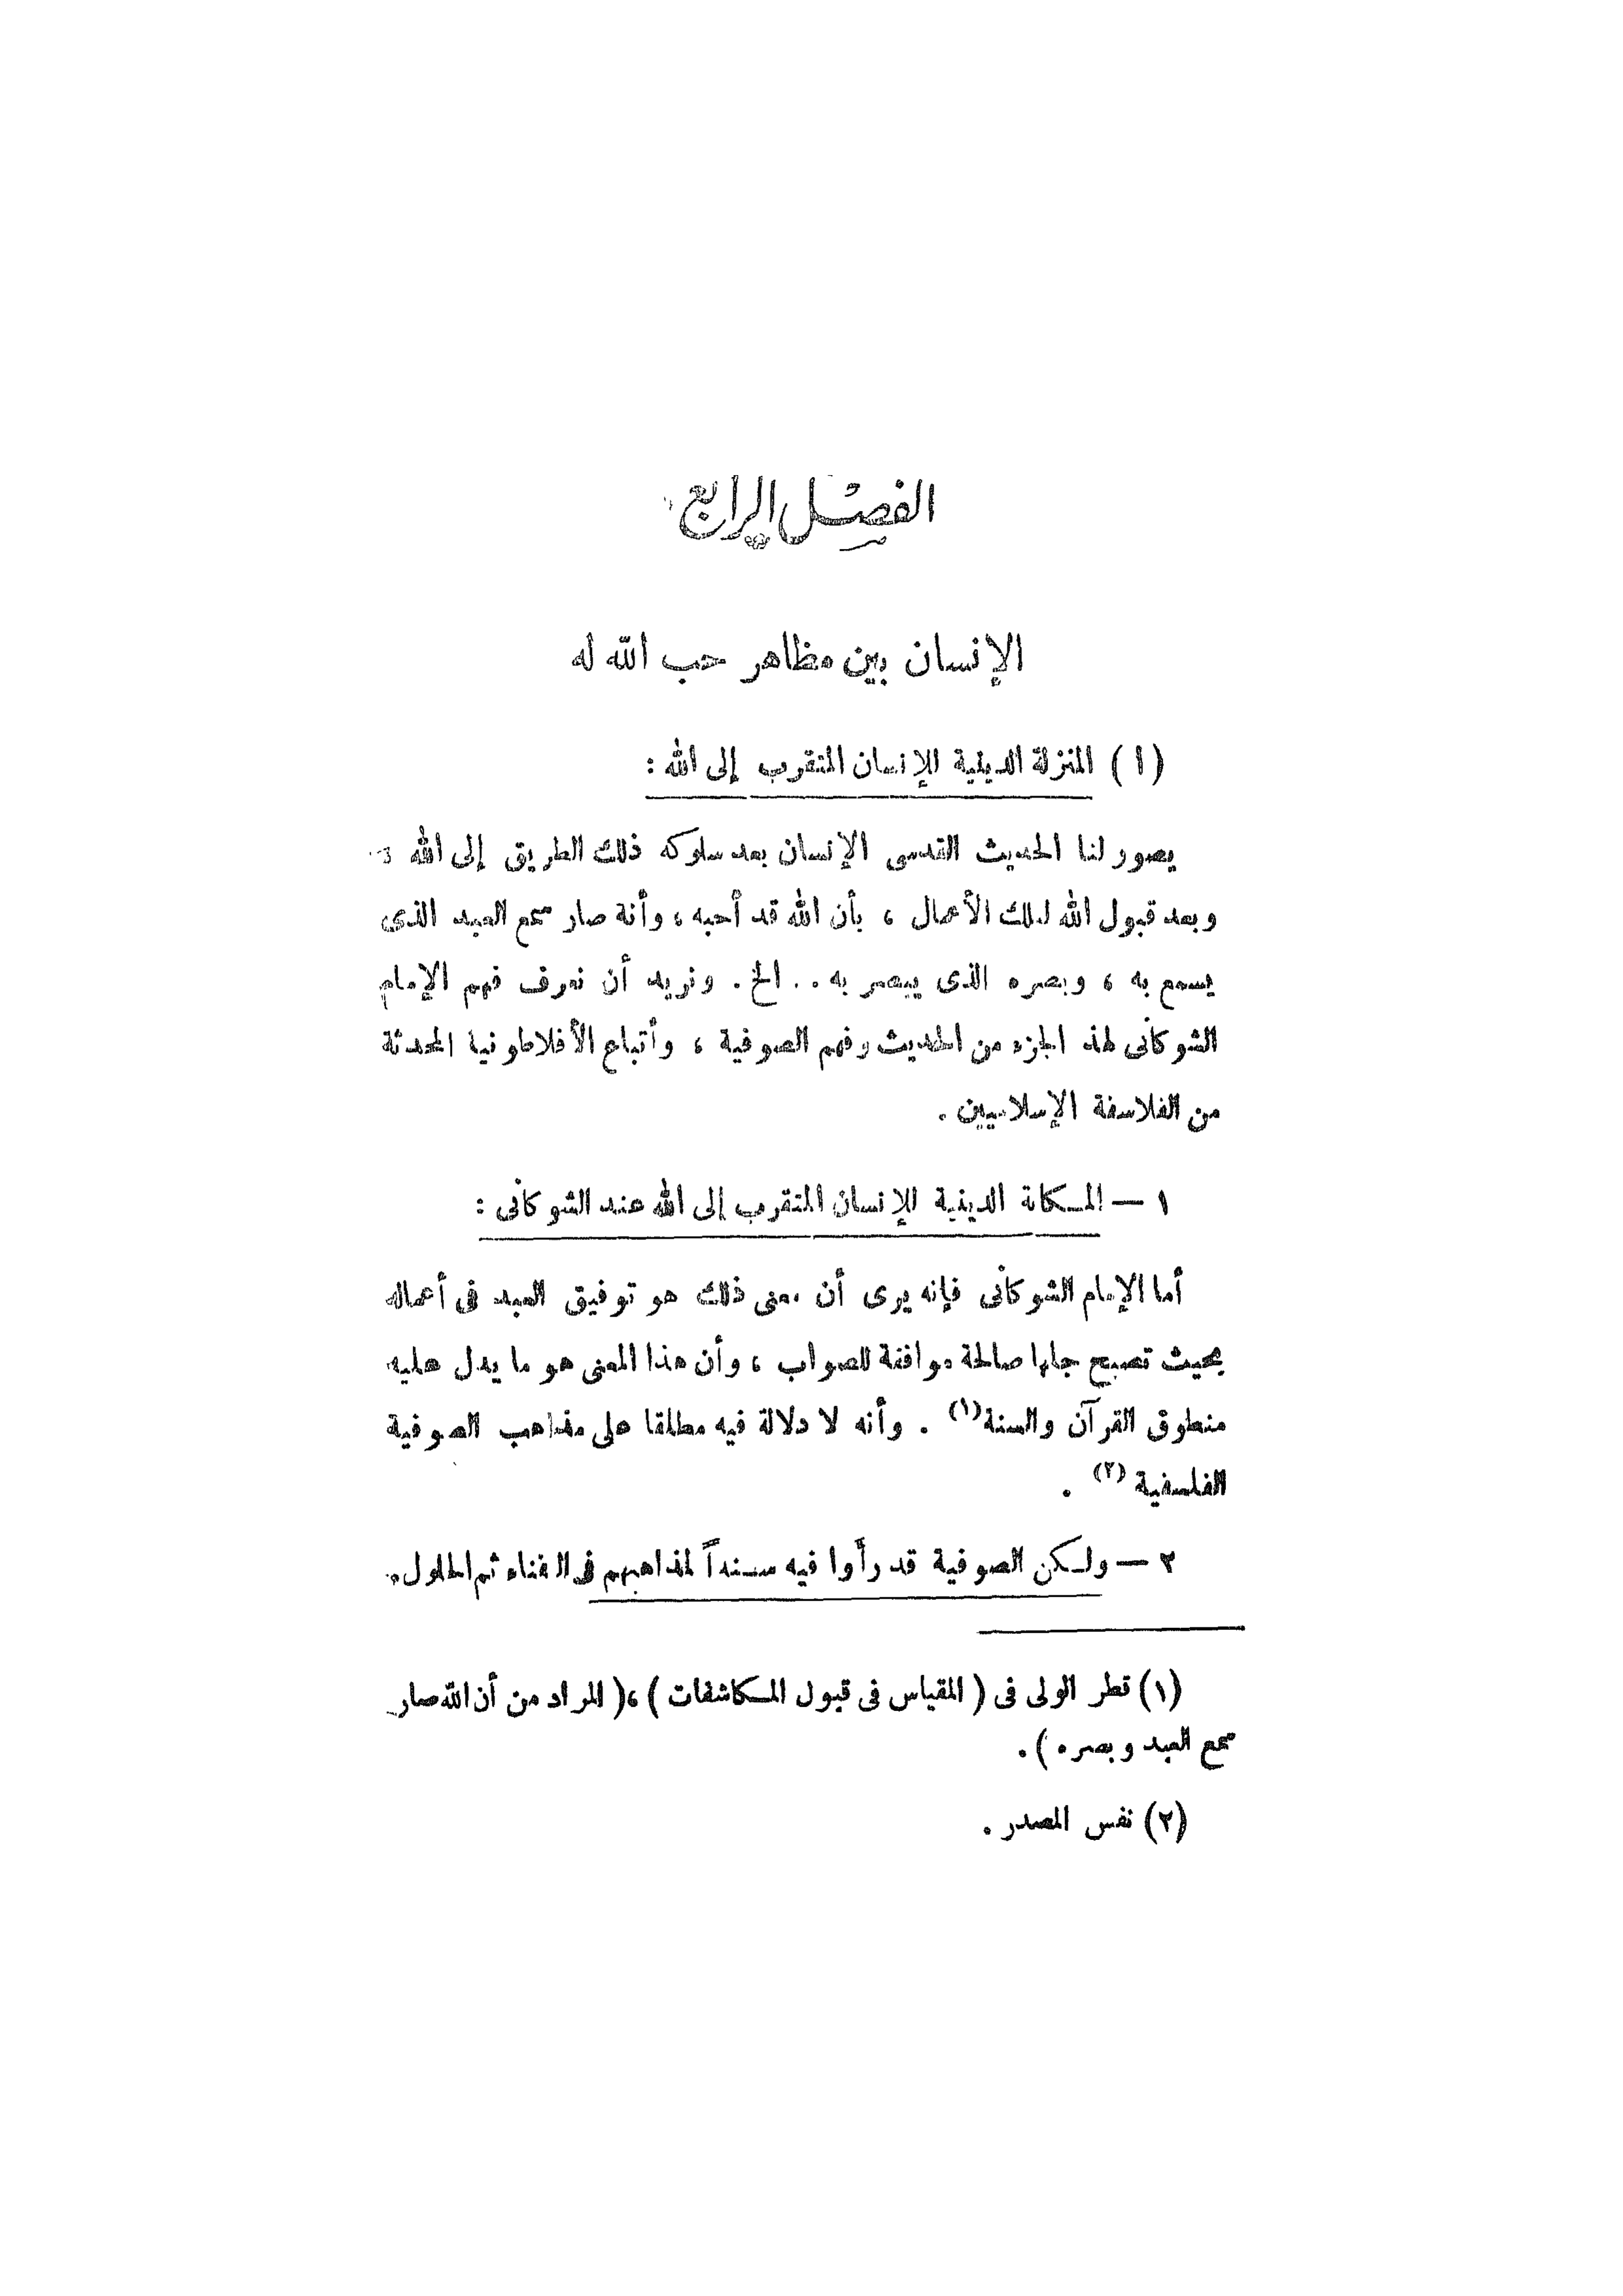 الفصل الرابع
الإنسان بين مظاهر حب الله له
( ا ) المنزلة الدينية للإنسان المتقرب إلى الله :
يصور لنا الحديث القدسى الإنسان بعد سلوكه ذلك الطريق إلى الله
وبعد قبول الله لتلك الأعمال ، بأن الله قد أحبه ، وأنة صار سمع العبد الذى
يسمع به ، وبصره الذى يبصر به .. الخ . ونريد أن نعرف فهم الإمام
الشوكانى لهذ الجزء من الحديث وفهم الصوفية ، وأتباع الأفلاطونيا المحدثة
من الفلاسفة الإسلاميين .
١ — المكانة الدينية للإنسان المتقرب إلى الله عند الشوكانى :
أما الإمام الشوكانى فإنه يرى أن معنى ذلك هو توفيق العبد فى أعماله
بحيث تصبح جلها صالحة موافقة للصواب ، وأن هذا المعنى هو ما يدل عليه
منطوق القرآن والسنة (١) . وأنه لا دلالة فيه مطلقا على مذاهب الصوفية
الفلسفية (٢) .
٢ — ولكن الصوفية قد رأوا فيه سنداً لمذاهبهم فى الفناء ثم الحلول .
(١) قطر الولى فى ( المقياس فى قبول المكاشفات ) ، ( المراد من أن الله صار
سمع العبد وبصره ) .
(٢) نفس المصدر .